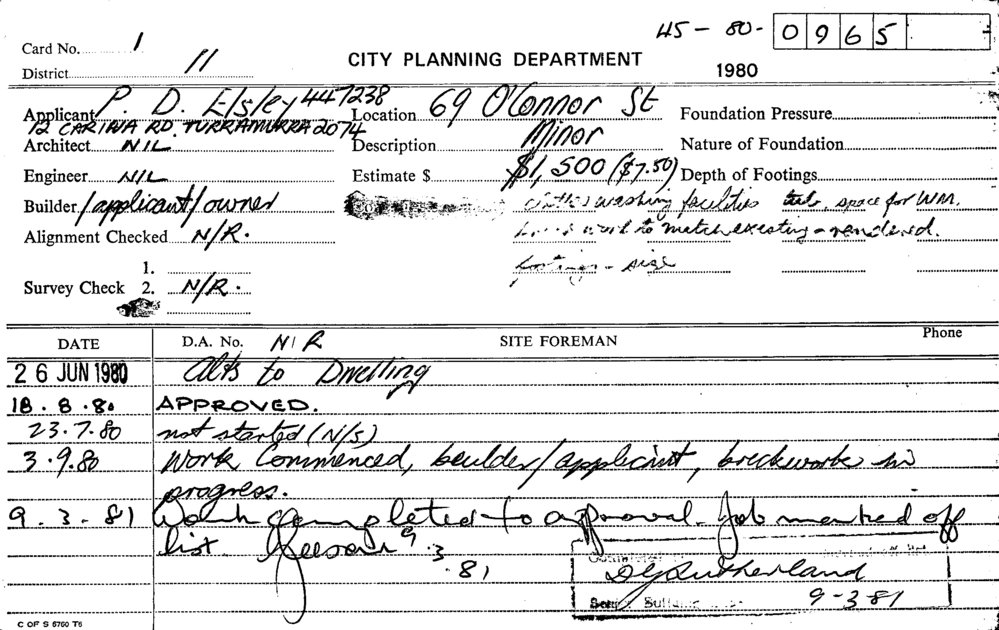 45 - 80 - 0965
Card No. 1
District 11
CITY PLANNING DEPARTMENT
1980
Applicant P. D. Elsley 447238
12 CARINA RD. TURRAMURRA 2074
Location 69 O'Connor St
Foundation Pressure
Architect NIL
Description Minor
Nature of Foundation
Engineer NIL
Estimate $ $1,500 ($7.50)
Depth of Footings
Builder /applicant/owner
washing facilities tub, space for WM.
Alignment Checked N/R.
work to match existing - rendered.
footings - size
Survey Check 1.
2. N/R.
DATE D.A. No. N/R SITE FOREMAN Phone
26 JUN 1980 Alts to Dwelling
18.8.80 APPROVED.
23.7.80 not started (N/S)
3.9.80 Work Commenced, builder/applicant, brickwork in
progress.
9.3.81 Work completed to approval. Job marked off
list. 9.3.81
DG Sutherland
9-3-81
C OF S 6760 T6